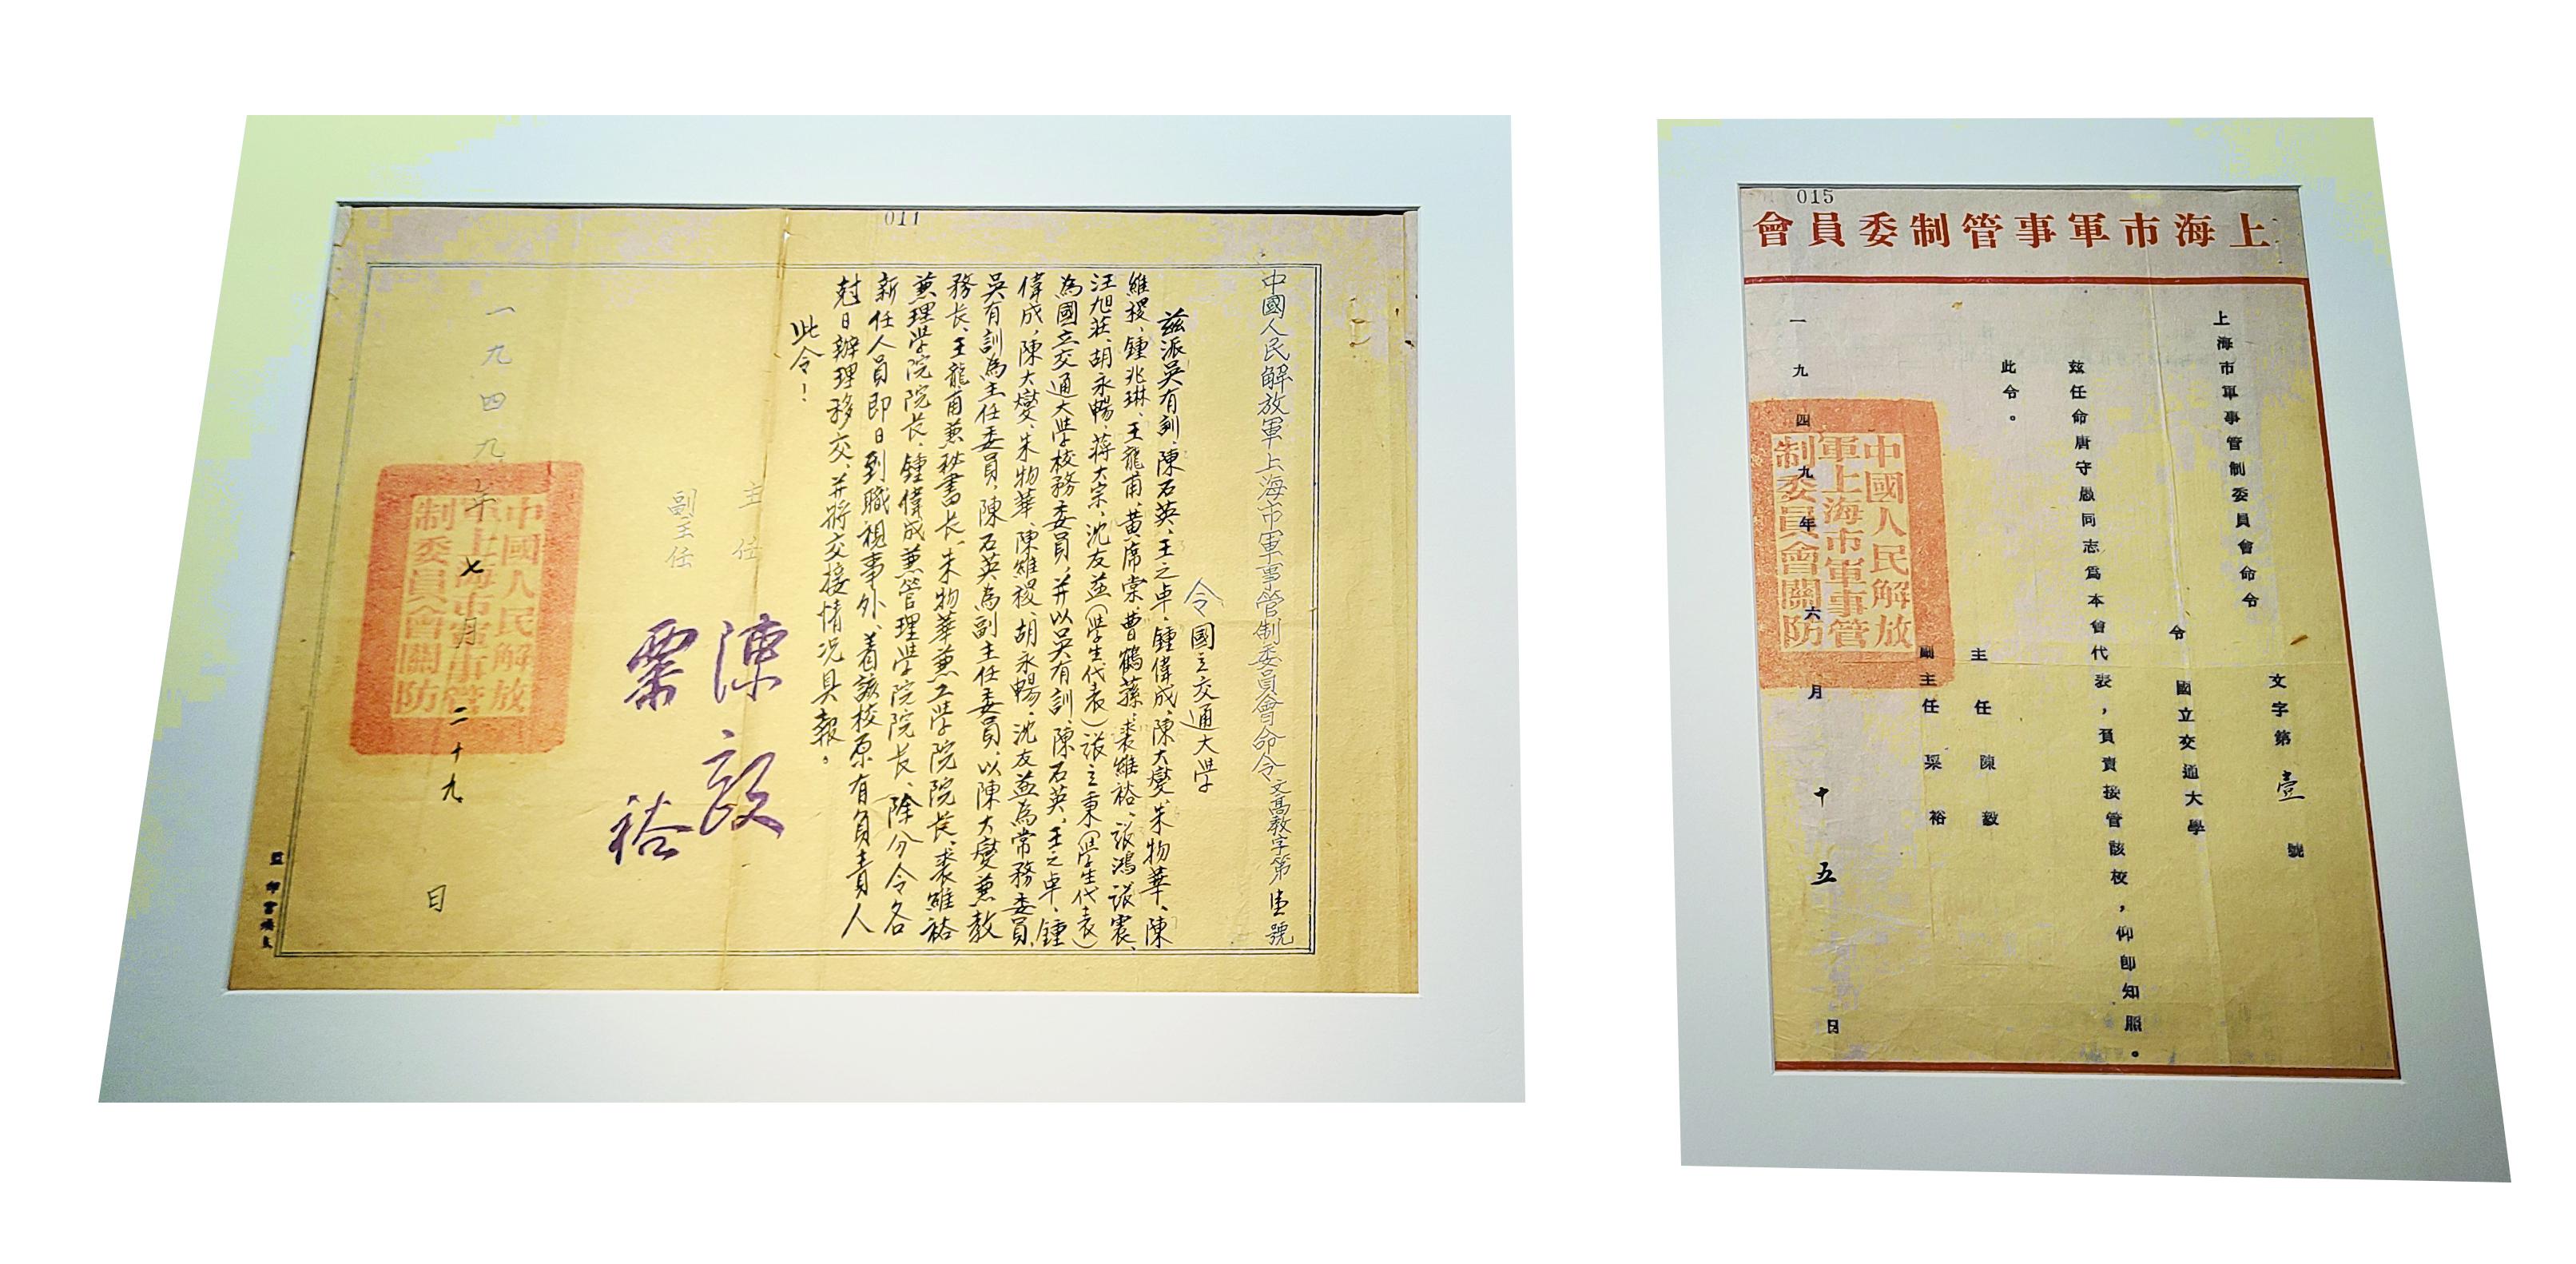 011
中國人民解放軍上海市軍事管制委員會命令 文高教字第壹號
令國立交通大學
茲派吳有訓、陳石英、王之卓、鍾偉成、陳大燮、朱物華、陳
維稷、鍾兆琳、王龍甫、黃席棠、曹鶴蓀、裘維裕、張鴻、張震、
汪旭莊、胡永暢、蔣大宗、沈友益（學生代表）張立秉（學生代表）
為國立交通大學校務委員，并以吳有訓、陳石英、王之卓、鍾
偉成、陳大燮、朱物華、陳維稷、胡永暢、沈友益為常務委員，
吳有訓為主任委員，陳石英為副主任委員，以陳大燮兼教
務長、王龍甫兼秘書長、朱物華兼工學院院長、裘維裕
兼理學院院長、鍾偉成兼管理學院院長，除分令各
新任人員即日到職視事外，着該校原有負責人
尅日辦理移交，并將交接情況具報。
此令！
主任 陳毅
副主任 粟裕
一九四九年七月二十九日
中國人民解放
軍上海市軍事管
制委員會關防
015
上海市軍事管制委員會
文字第壹號
上海市軍事管制委員會命令
令 國立交通大學
茲任命唐守愚同志爲本會代表，負責接管該校，仰即知照。
此令。
主任 陳毅
副主任 粟裕
一九四九年六月十五日
中國人民解放
軍上海市軍事管
制委員會關防